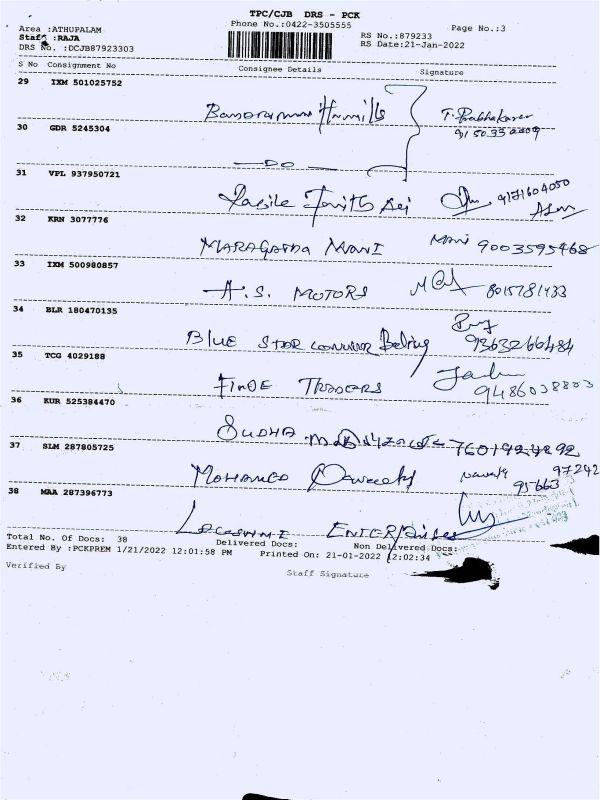 TPC/CJB DRS - PCK
Area :ATHUPALAM Phone No.:0422-3505555 Page No.:3
Staff :RAJA RS No.:879233
DRS No. :DCJB87923303 RS Date:21-Jan-2022
S No Consignment No Consignee Details Signature
29 IXM 501025752
T. Prabhakaran
30 GDR 5245304
— DO —
31 VPL 937950721
9171604050
32 KRN 3077776
MARAGATHA MANI Mani 9003595468
33 IXM 500980857
A.S. MOTORS 8015781433
34 BLR 180470135
BLUE STAR 9363266484
35 TCG 4029188
TRADERS 9486038803
36 KUR 525384470
SUDHA 7601924892
37 SLM 287805725
MOHAMED 97242
95663
38 MAA 287396773
ENTERPRISES
Total No. Of Docs: 38 Delivered Docs: Non Delivered Docs:
Entered By :PCKPREM 1/21/2022 12:01:58 PM Printed On: 21-01-2022 12:02:34
Verified By Staff Signature